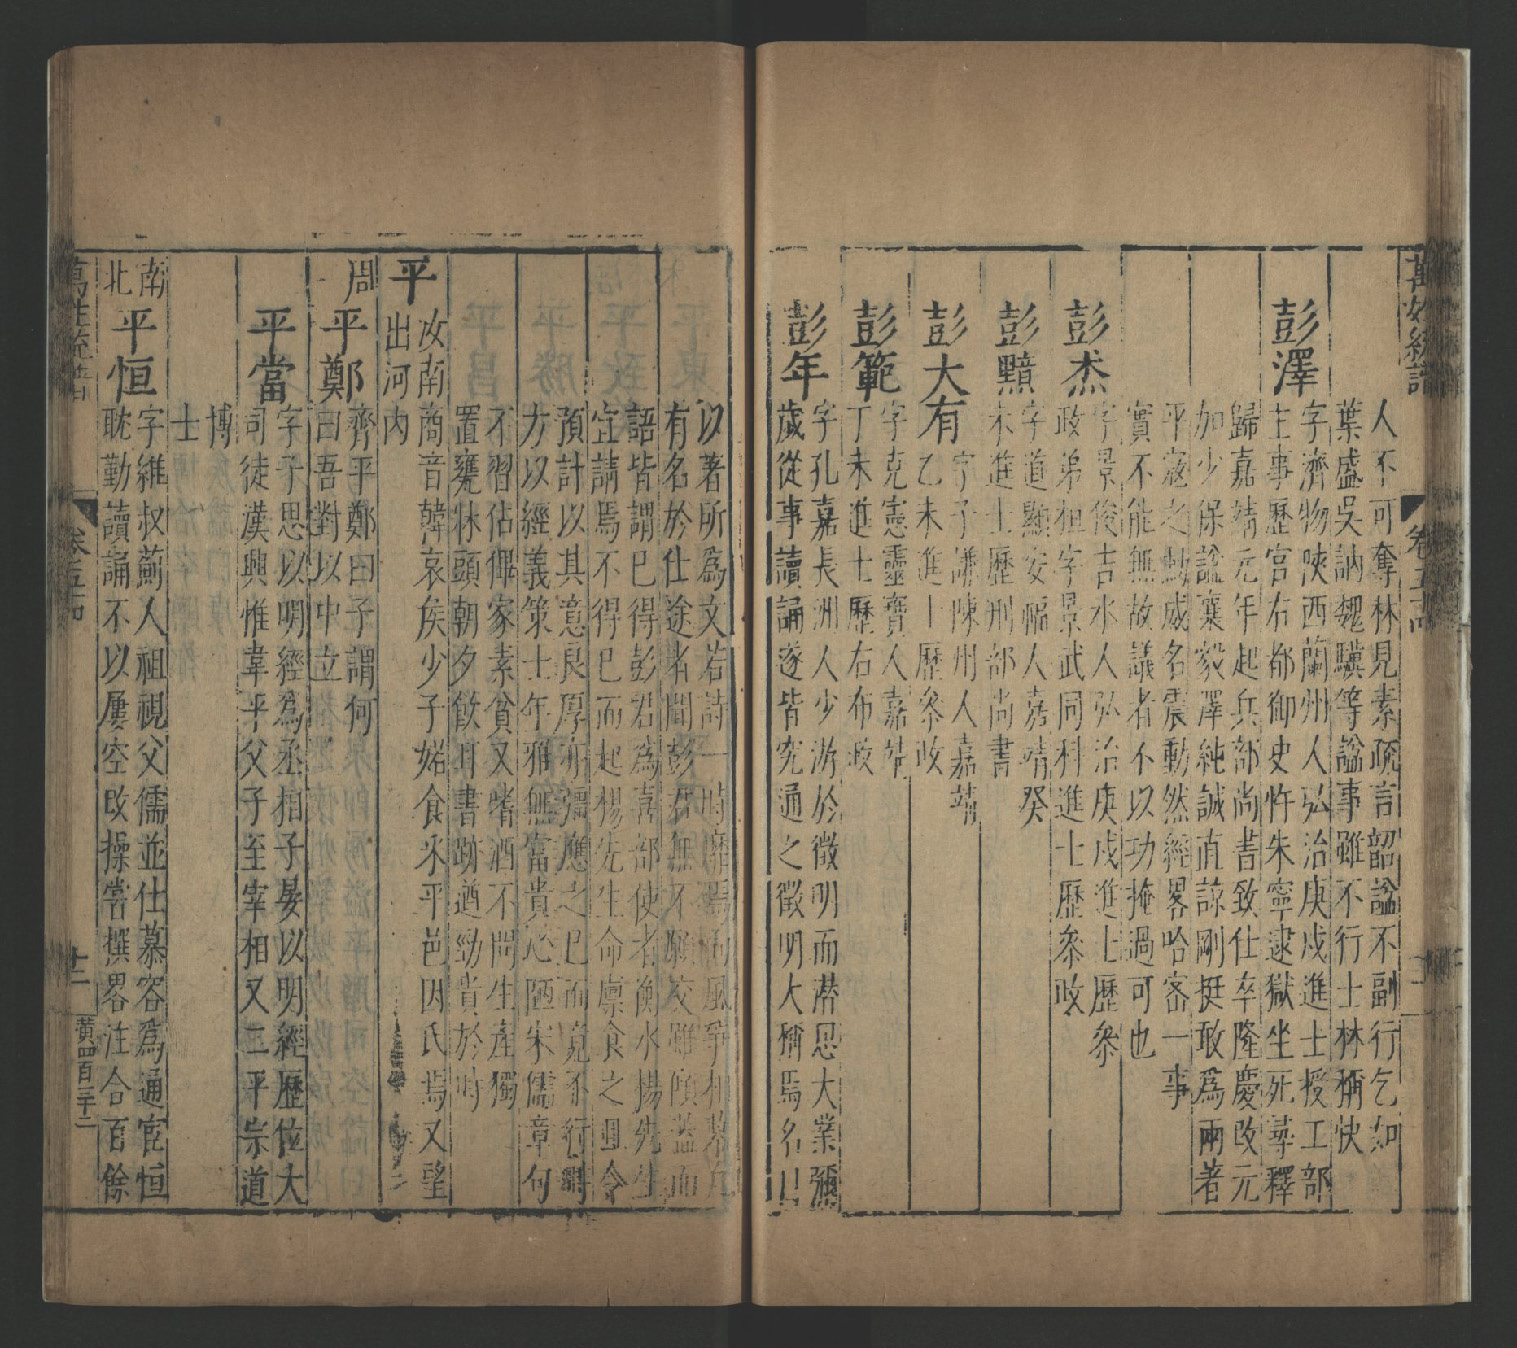 萬姓統譜
卷五十四
人不可奪林見素疏言韶諡不副行乞如
葉盛吳訥魏驥等諡事雖不行士林稱快
彭澤
字濟物陝西蘭州人弘治庚戌進士授工部
主事歷官右都御史忤朱寧逮獄坐死尋釋
歸嘉靖元年起兵部尚書致仕卒隆慶改元
加少保諡襄毅澤純誠直諒剛挺敢爲兩著
平寇之勳威名震動然經畧哈密一事
實不能無故議者不以功掩過可也
彭杰
字景俊吉水人弘治庚戌進士歷叅
政弟桓字景武同科進士歷叅政
彭黯
字道顯安福人嘉靖癸
未進士歷刑部尚書
彭大有
字子謙陳州人嘉靖
乙未進士歷叅政
彭範
字克憲靈寶人嘉靖
丁未進士歷右布政
彭年
字孔嘉長洲人少游於徵明而潛思大業彌
歲從事讀誦遂皆究通之徵明大稱焉名已
以著所爲文若詩一時靡焉向風爭相慕
有名於仕途者聞彭名無不願交雖傾蓋而
語皆謂已得彭君爲喜部使者衡水楊先生
宜請焉不得已而起楊先生命廩食之且令
預計以其意良厚亦彊應之已而竟不行
方以經義策士年雅無富貴心陋宋儒章句
不習佔俾家素貧又嗜酒不問生產獨
置甕牀頭朝夕飲耳書跡遒勁貴於時
平
汝南商音韓哀矦少子婼食采平邑因氏焉又望
出河內
周
平鄭
齊平鄭曰子謂何
曰吾對以中立
平當
字子思以明經爲丞相子晏以明經歷位大
司徒漢興惟韋平父子至宰相又二平宗道
博
士
南
北
平恒
字維叔薊人祖視父儒並仕慕容爲通官恒
耽勤讀誦不以屢空改操嘗撰畧注合百餘
萬姓統譜
卷五十四
十二
黃四百三十二